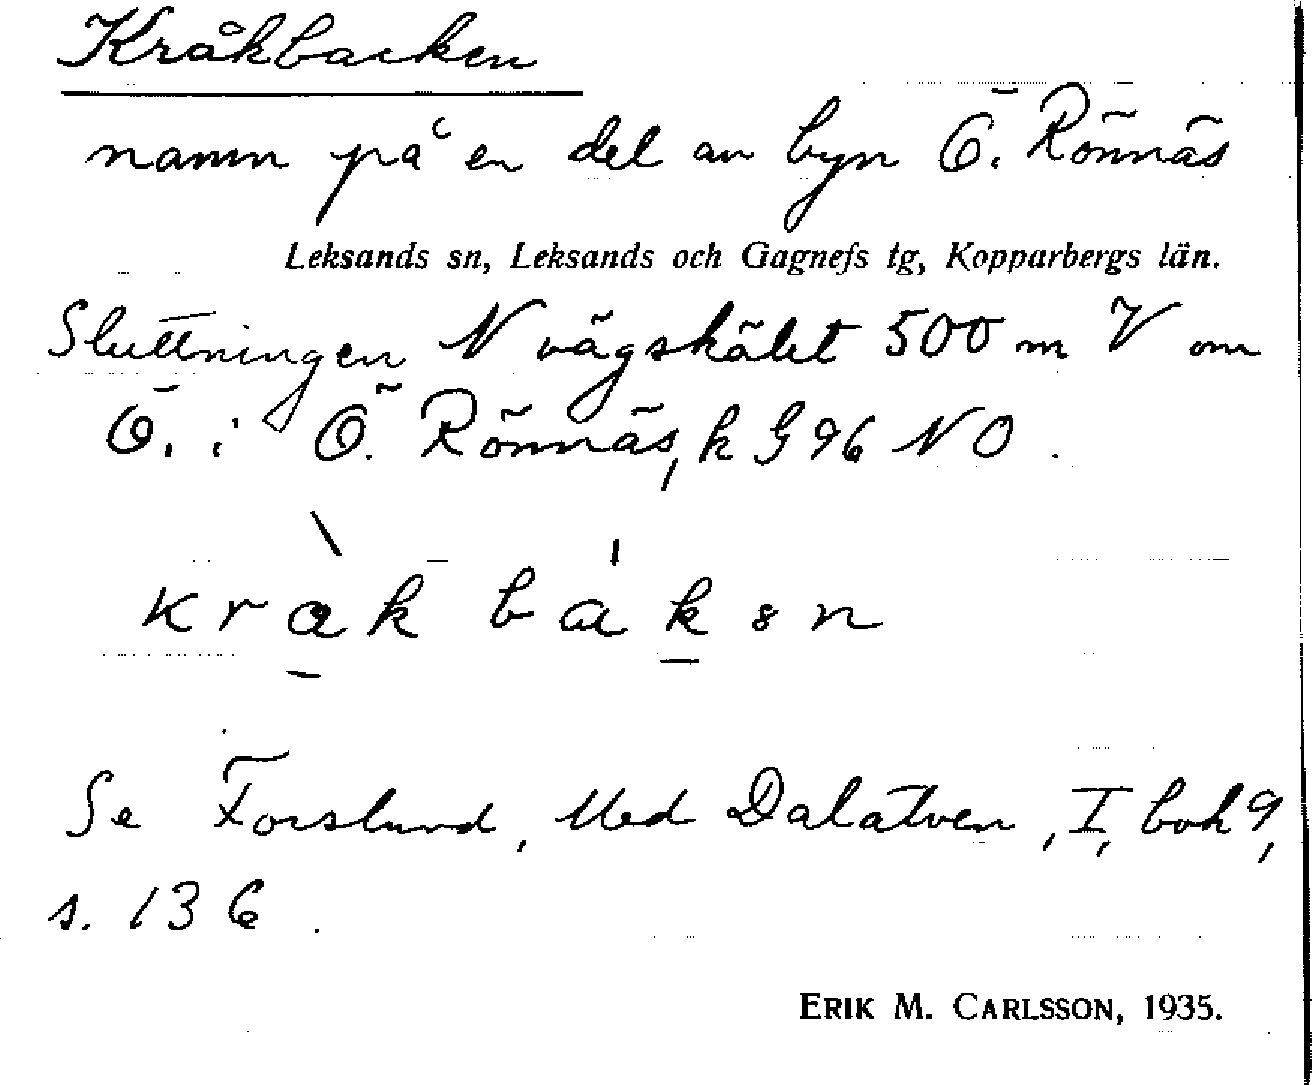 Kråkbacken
namn på en del av byn Ö. Rönnäs
Leksands sn, Leksands och Gagnefs tg, Kopparbergs län.
Sluttningen N vägskälet 500 m V om
Ö. i Ö. Rönnäs, k G 96 NO.
Se Forslund, Med Dalälven, I, bok 9,
s. 136.
ERIK M. CARLSSON, 1935.